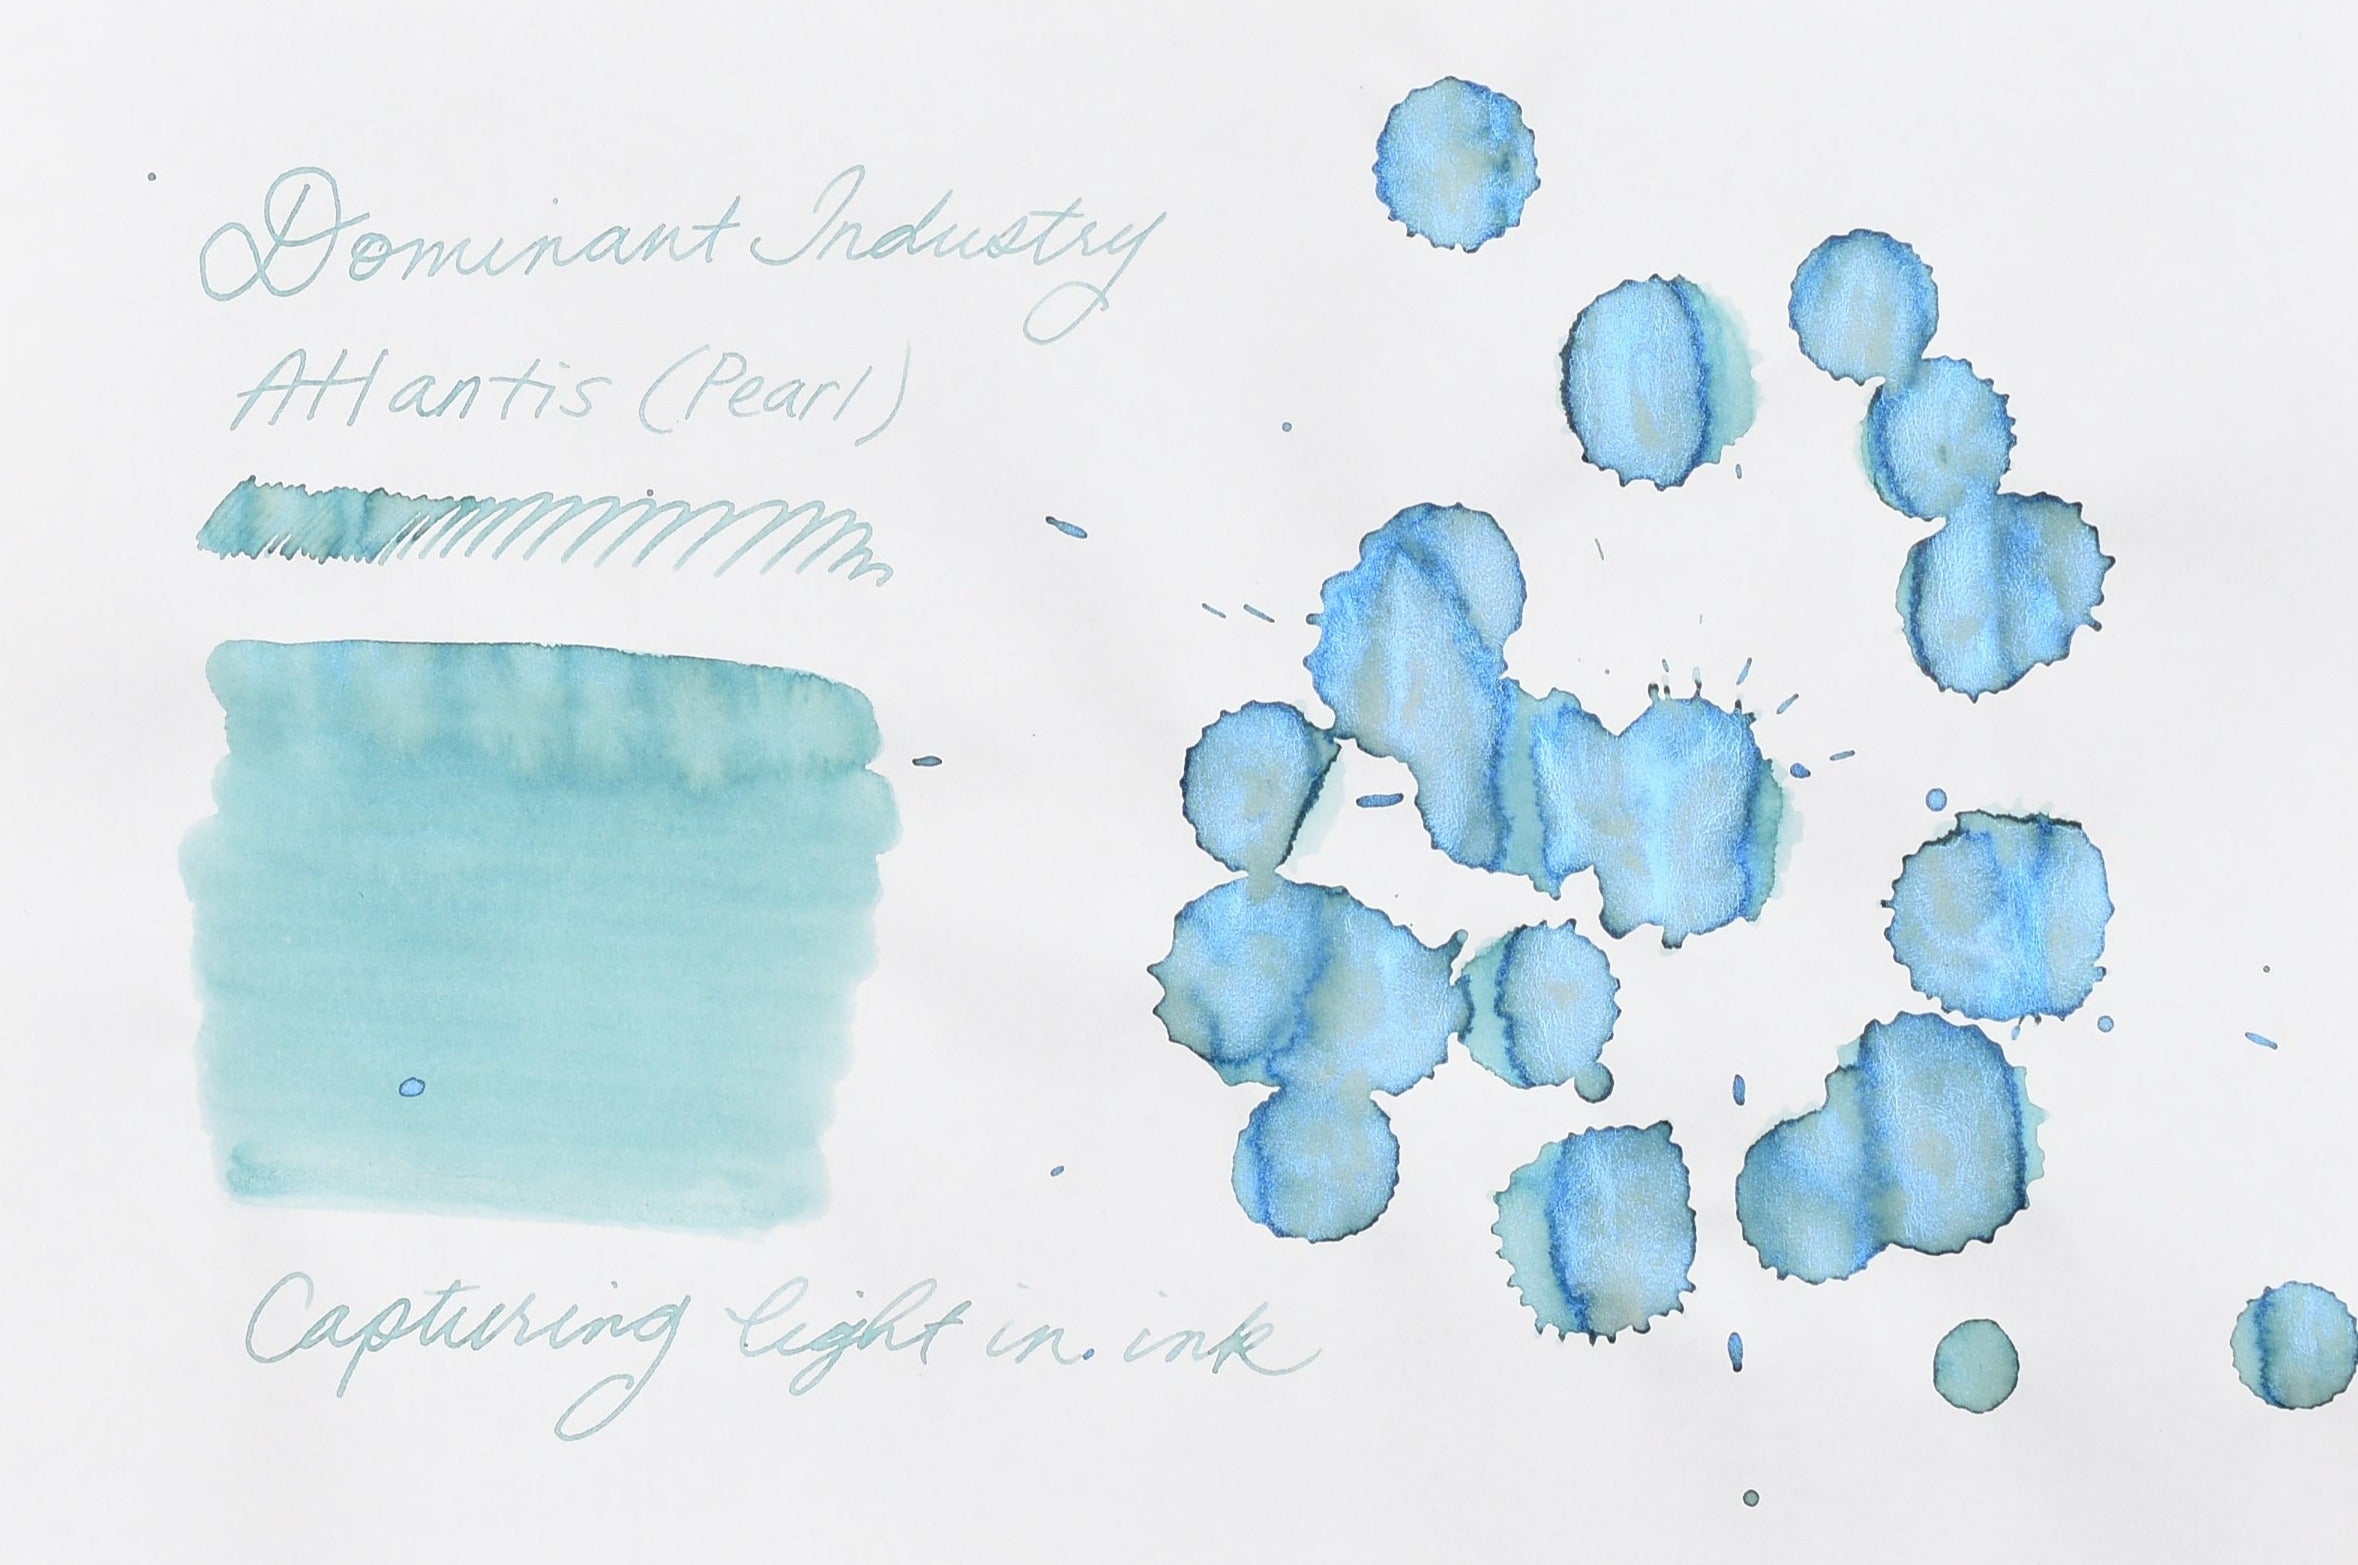 Dominant Industry
Atlantis (Pearl)
Capturing light in ink